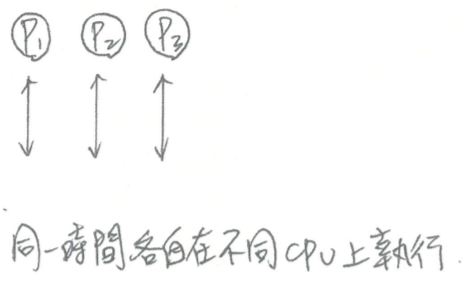 P1 P2 P3
同一時間各自在不同CPU上執行.